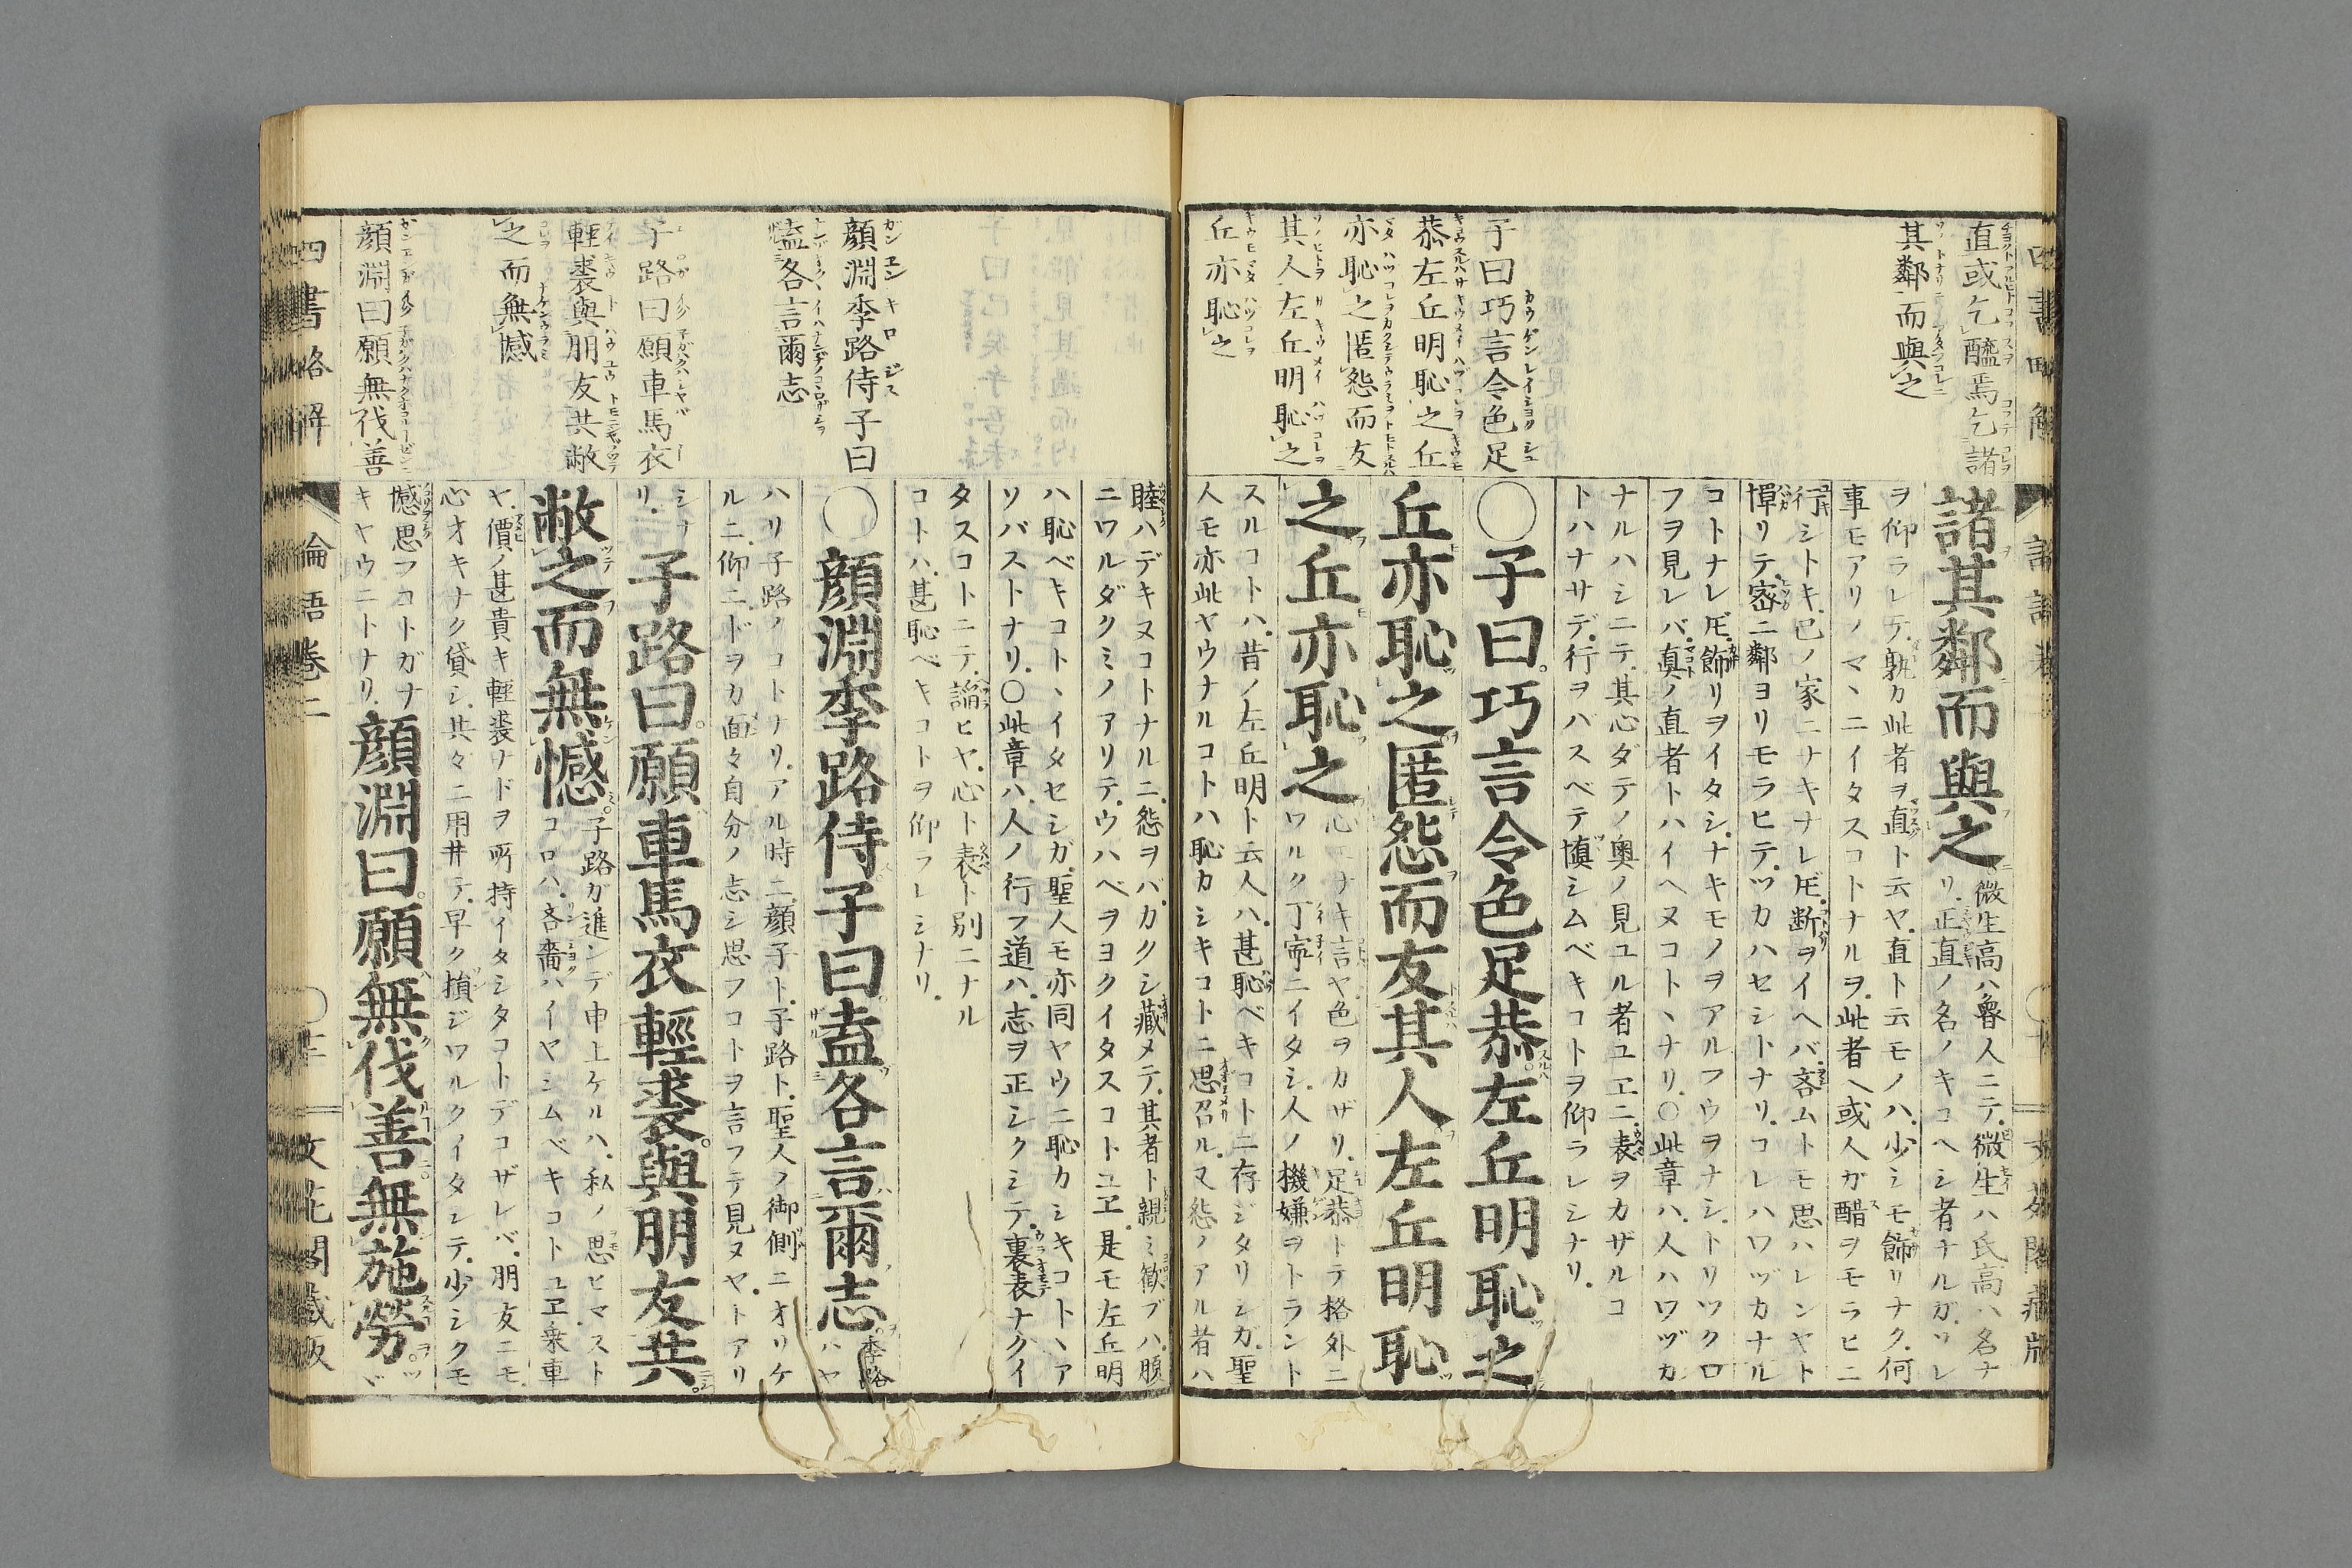 直或乞醯焉乞諸
其鄰而與之
子曰巧言令色足
恭左丘明恥之丘
亦恥之匿怨而友
其人左丘明恥之
丘亦恥之
諸其鄰而與之
微生高ハ魯人ニテ微生ハ氏高ハ名ナ
リ正直ノ名ノキコヘシ者ナルガソレ
ヲ仰ラレテ孰カ此者ヲ直ト云ヤ直ト云モノハ少シモ飾リナク何
事モアリノマヽニイタスコトナルヲ此者ヘ或人ガ醋ヲモラヒニ
行シトキ已ノ家ニナキナレ𪜈断ヲイヘバ吝ムトモ思ハレンヤト
憚リテ密ニ鄰ヨリモラヒテツカハセシトナリコレハワヅカナル
コトナレ𪜈飾リヲイタシナキモノヲアルフウヲナシトリツクロ
フヲ見レバ真ノ直者トハイヘヌコトヽナリ○此章ハ人ハワヅカ
ナルハシニテ其心ダテノ奥ノ見ユル者ユヱニ表ヲカザルコ
トハナサデ行ヲハスベテ慎シムベキコトヲ仰ラレシナリ
○子曰巧言令色足恭左丘明恥之
丘亦恥之匿怨而友其人左丘明恥
之丘亦恥之
心ニナキ言ヤ色ヲカザリ足恭トテ格外ニ
ワルク丁寧ニイタシ人ノ機嫌ヲトラント
スルコトハ昔ノ左丘明ト云人ハ甚恥ベキコトニ存ジタリシガ聖
人モ亦此ヤウナルコトハ恥カシキコトニ思召ル又怨ノアル者ハ
睦ハデキヌコトナルニ怨ヲバカクシ藏メテ其者ト親ミ歓ブハ腹
ニワルダクミノアリテウハベヲヨクイタスコトユヱ是モ左丘明
ハ恥ベキコトヽイタセシガ聖人モ亦同ヤウニ恥カシキコトヽア
ソバストナリ○此章ハ人ノ行フ道ハ志ヲ正シクシテ裏表ナクイ
タスコトニテ諭ヒヤ心ト表ト別ニナル
コトハ甚恥ベキコトヲ仰ラレシナリ
顔淵季路侍子曰
盍各言爾志
子路曰願車馬衣
輕裘與朋友共敝
之而無憾
顔淵曰願無伐善
○顔淵季路侍子曰盍各言爾志
季路
ハヤ
ハリ子路ノコトナリアル時ニ顔子ト子路ト聖人ノ御側ニオリケ
ルニ仰ニドヲカ面々自分ノ志シ思フコトヲ言フテ見ヌヤトアリ
シナ
リ
子路曰願車馬衣輕裘與朋友共
敝之而無憾
子路ガ進ンデ申上ケルハ私ノ思ヒマスト
コロハ吝嗇ハイヤシムベキコトユヱ乗車
ヤ價ノ甚貴キ輕裘ナドヲ所持イタシタコトデコザレバ朋友ニモ
心オキナク貸シ共々ニ用井テ早ク損ジワルクイタシテ少シクモ
憾思フコトガナ
キヤウニトナリ
顔淵曰願無伐善無施勞
四書略解
論語巻二
文花閣藏版